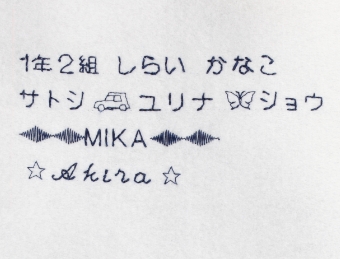 1年2組 しらい かなこ
サトシ ユリナ ショウ
MIKA
Akira